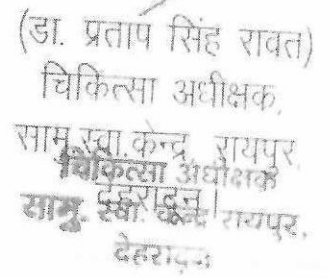 (डा. प्रताप सिंह रावत)
चिकित्सा अधीक्षक,
सामु.स्वा.केन्द्र, रायपुर
चिकित्सा अधीक्षक
देहरादून।
सामु. स्वा. केन्द्र रायपुर,
देहरादून